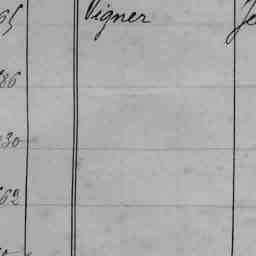 65 Vigner Je
86
30
62